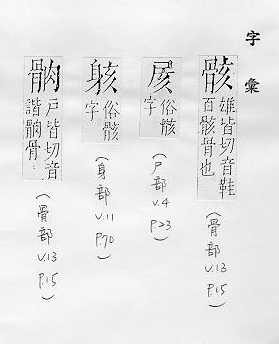 字彙
骸
雄皆切音鞋
百骸骨也
(骨部 v.13 P.15)
俗骸
字
(尸部 v.4 P.23)
俗骸
字
(身部 v.11 P.70)
戶皆切音
諧 骨
(骨部 v.13 P.15)